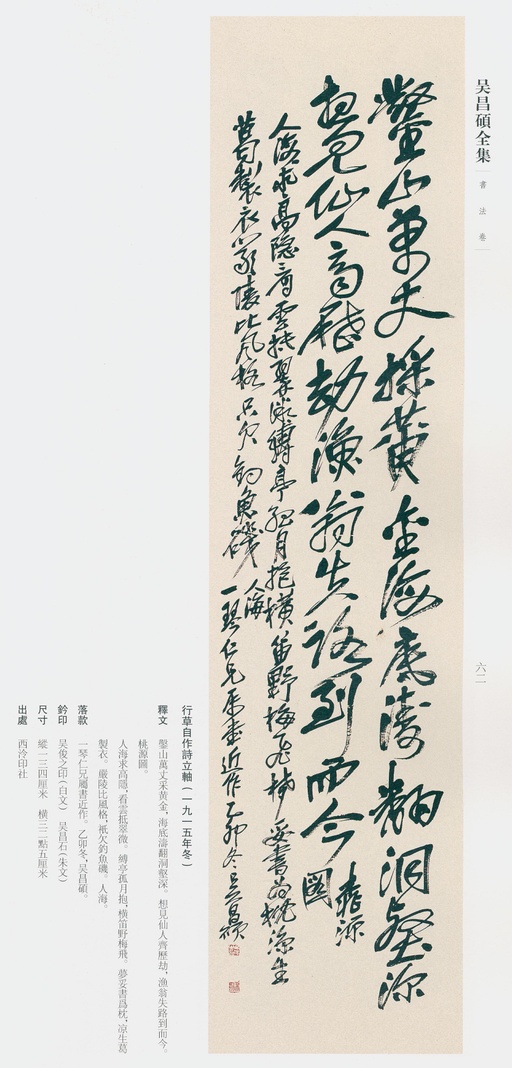 吴昌碩全集
書法卷
六二
鑿山萬丈採黄金海底濤翻洞壑深
想見仙人齊歷劫漁翁失路到而今
桃源圖
人海求高隱看雲抵翠微縛亭孤月抱橫笛野梅飛夢妥書爲枕涼生
葛製衣嚴陵比風格只欠釣魚磯
人海
一琴仁兄屬書近作乙卯冬吴昌碩
行草自作詩立軸(一九一五年冬)
釋文 鑿山萬丈采黄金,海底濤翻洞壑深。想見仙人齊歷劫,漁翁失路到而今。
桃源圖。
人海求高隱,看雲抵翠微。縛亭孤月抱,橫笛野梅飛。夢妥書爲枕,凉生葛
製衣。嚴陵比風格,衹欠釣魚磯。人海。
落款 一琴仁兄屬書近作。乙卯冬,吴昌碩。
鈐印 吴俊之印(白文) 吴昌石(朱文)
尺寸 縱一三四厘米 橫三二點五厘米
出處 西泠印社